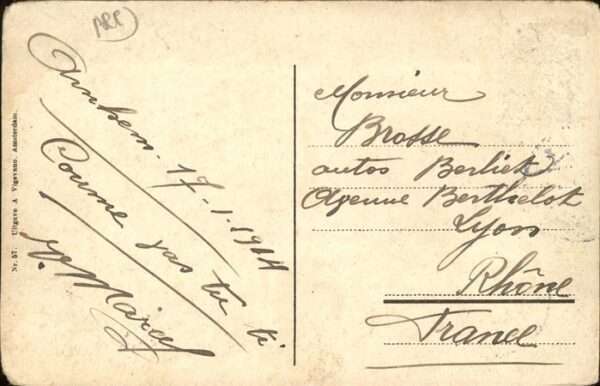 ARR
Arnhem. 17-1.1914
Coume vas tu ti
Marcel
Nr. 57. Uitgave A. Vigevano, Amsterdam.
Monsieur
Brosse
autos Berliet
Avenue Berthelot
Lyon
Rhône
France